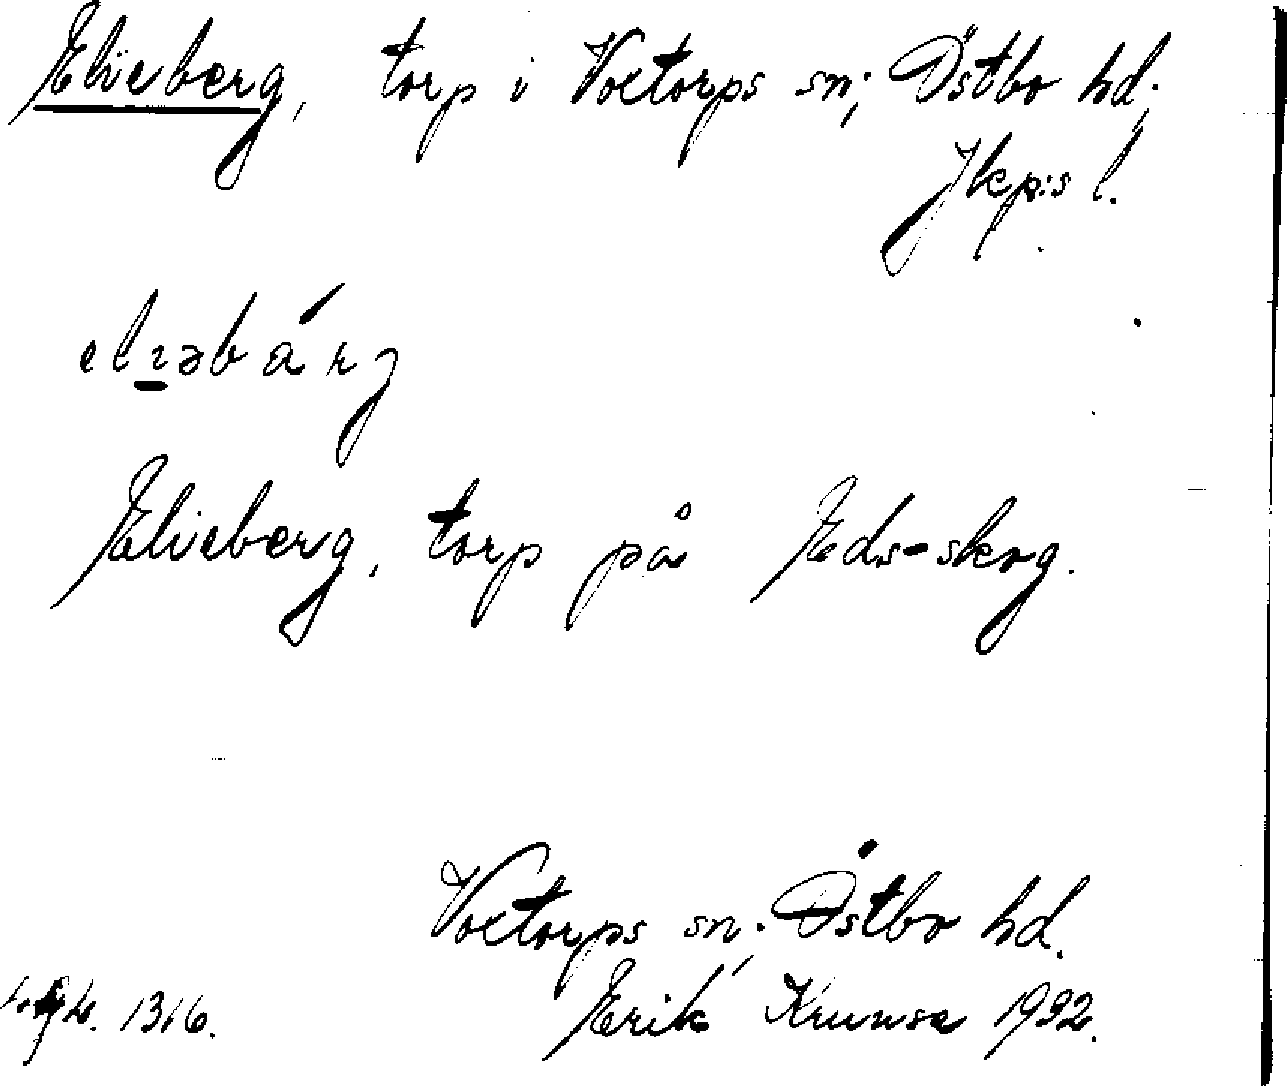 Elieberg, torp i Voxtorps sn; Östbo hd;
Jkp:s l.
elɿəbárg
Elieberg, torp på Eds-skog.
Voxtorps sn; Östbo hd.
1316. Erik Krunse 1932.